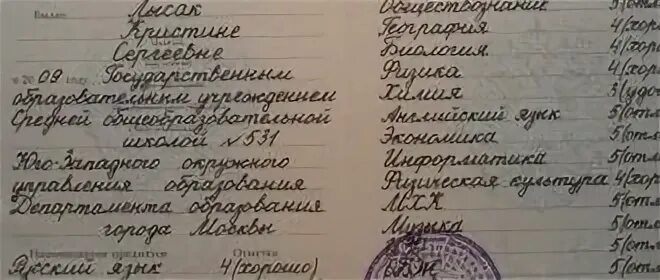 Выдан Лысак
Кристине
Сергеевне
в 2009 году Государственным
образовательным учреждением
Средней общеобразовательной
школой №531
Юго-Западного окружного
управления образования
Департамента образования
города Москвы
Наименование предметов Отметки
Русский язык 4(хорошо)
Обществознание 5(отл
География 4(хор
Биология 4(хор
Физика 4(хор
Химия 3(удо
Английский язык 5(отл
Экономика 5(отл
Информатика 5(отл
Физическая культура 4(хор
МХК 5(отл
Музыка 5(отл
ОБЖ 5(отл